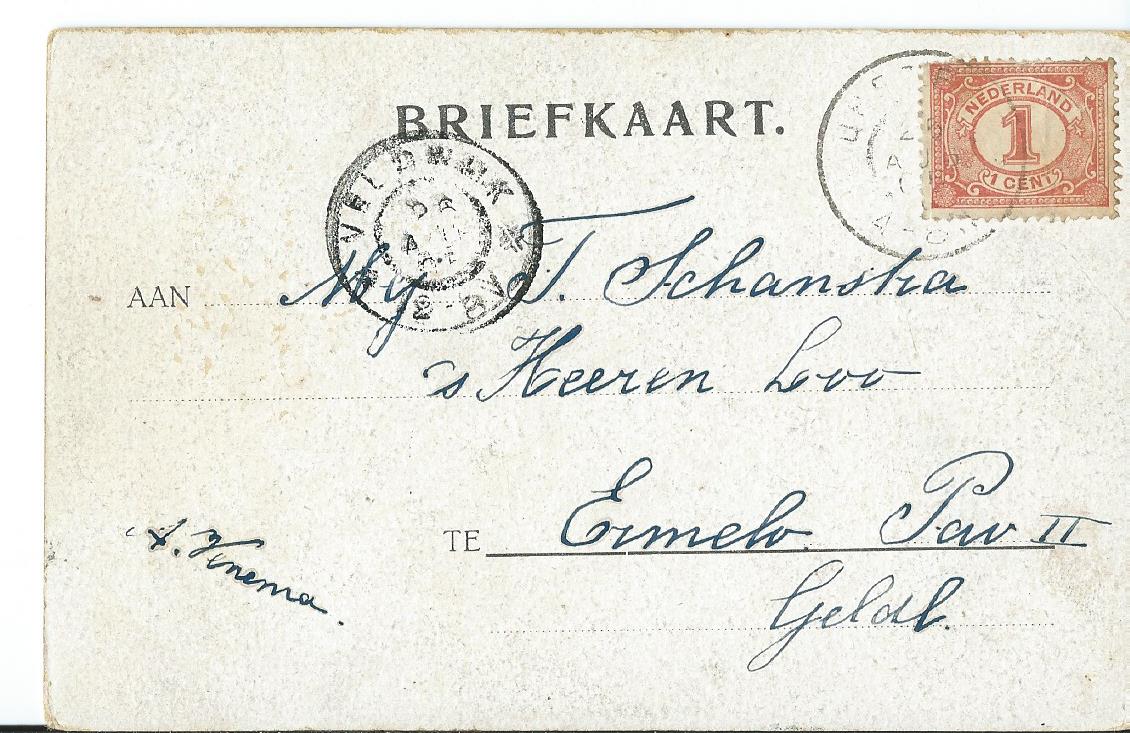 BRIEFKAART.
NEDERLAND
1
1 CENT
VELDWIJK
AAN Mej T. Schanstra
's Heeren Loo
TE Ermelo. Pav II
Geldl.
A. Venema.